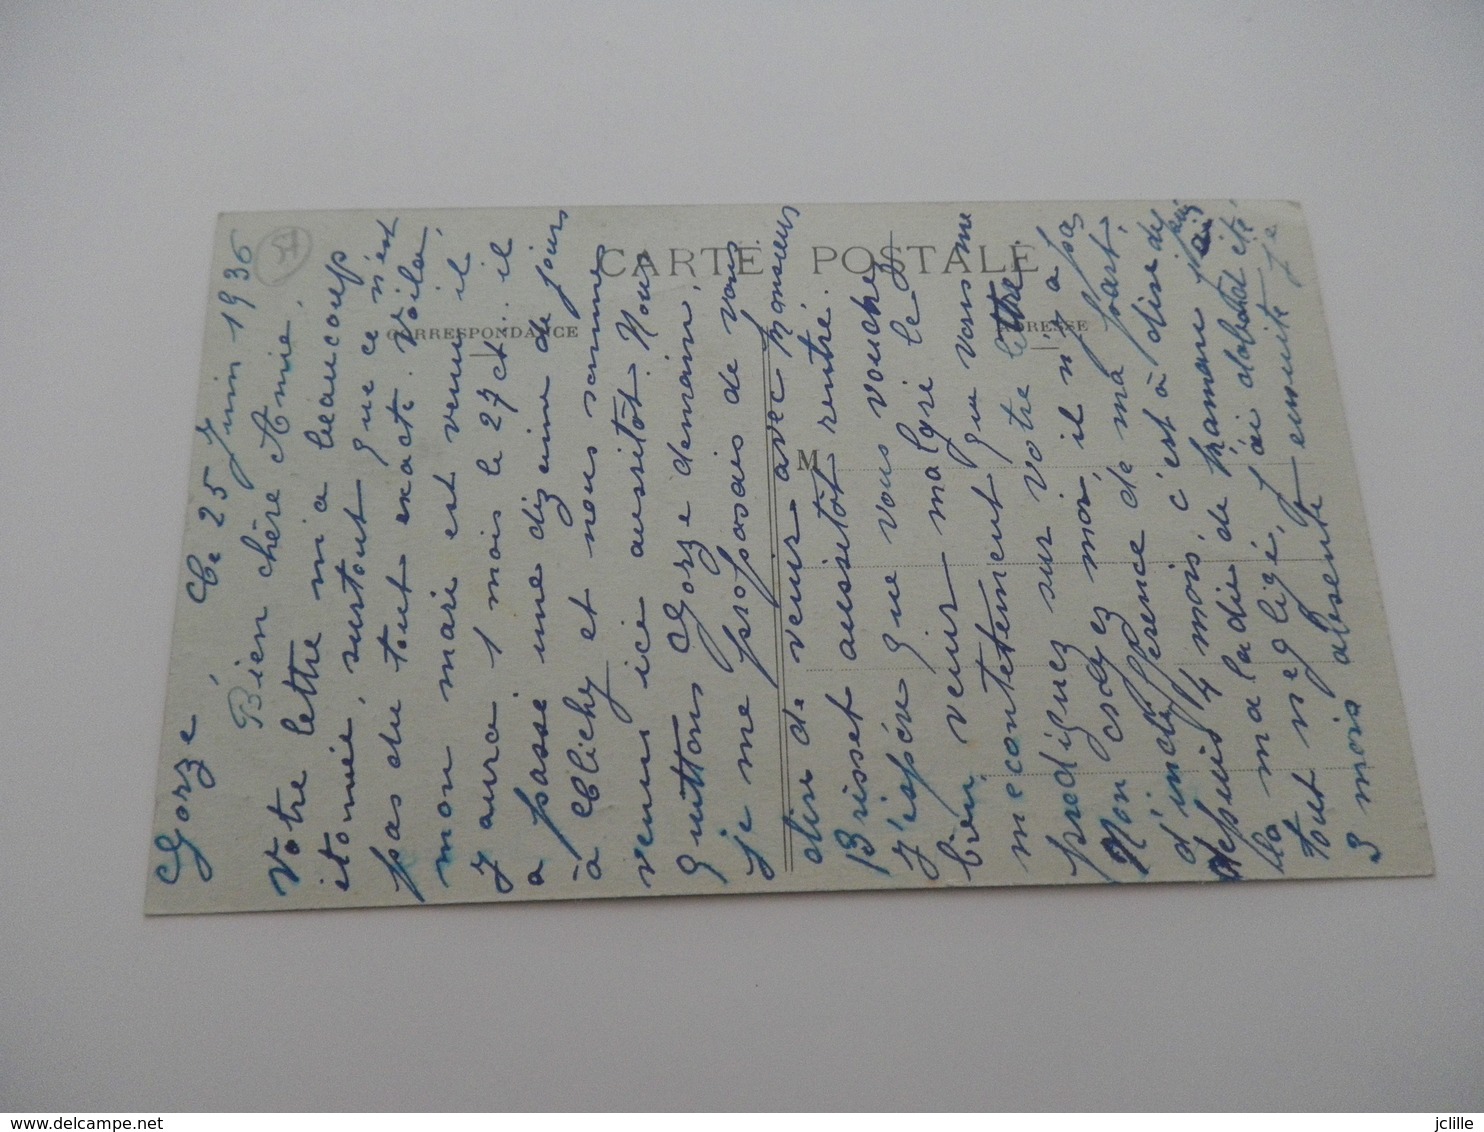 Gorze, le 25 Juin 1936
Bien chère Amie.
Votre lettre m'a beaucoup
étonnée, surtout que ce n'est
pas du tout exact. Voilà,
mon mari est venu il
y aura 1 mois le 27 ct. il
a passé une dizaine de jours
à Clichy et nous sommes
venus ici aussitôt. Nous
quittons Gorze demain,
je me proposais de vous
dire de venir avec Monsieur
Brisset aussitôt rentré.
J'espère que vous vouchez
bien venir malgré le
mécontentement que vous me
prodiguez sur votre lettre.
Non croyez moi, il n'y a pas
d'indifférence de ma part,
depuis 4 mois, c'est à dire depuis
la maladie de Maman j'ai
tout négligé, j'ai d'abord été
3 mois absente ensuite je
CARTE POSTALE
CORRESPONDANCE
ADRESSE
M
57
www.delcampe.net
jclille